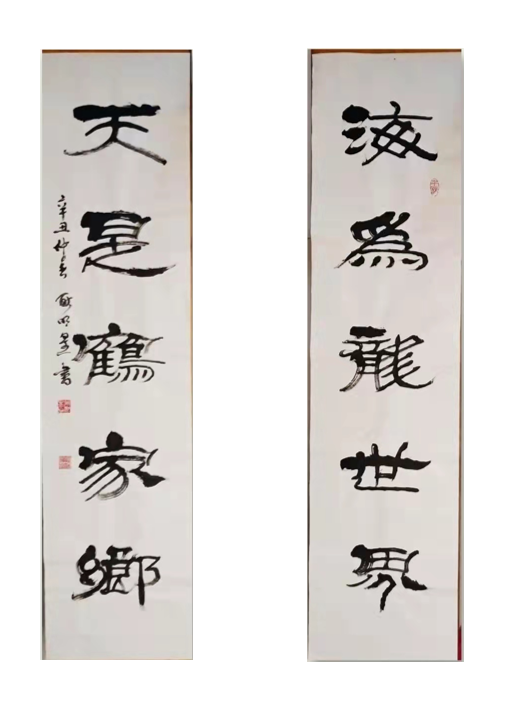 海為龍世界
天是鶴家鄉
辛丑仲春
明星書